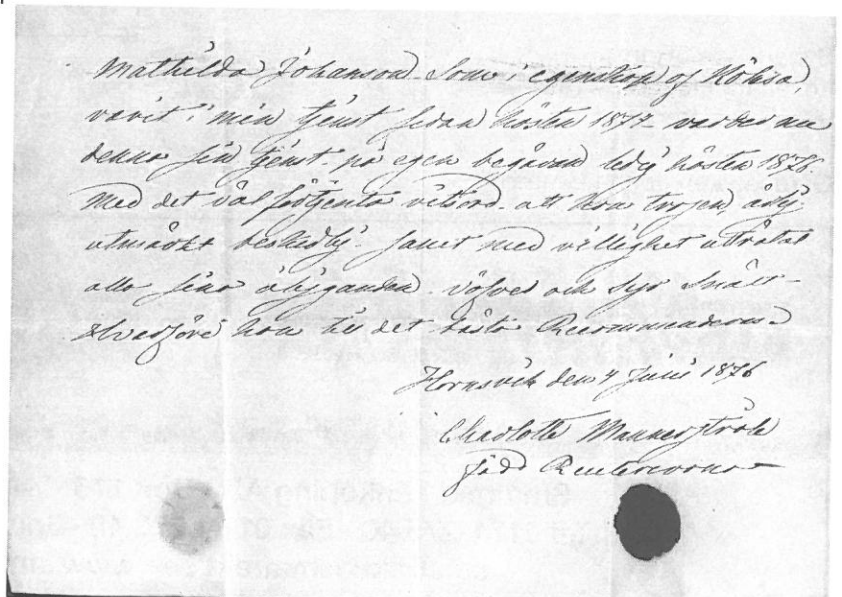 Mathilda Johanson som i egenskap af Köksa,
varit i min tjenst sedan hösten 1874 varder nu
denna sin tjenst på egen begäran ledig hösten 1876
med det väl förtjenta vitsord att hon trogen, ärlig,
utmärkt beskedlig samt med villighet uträttat
alla sina åligganden väfver och syr Snält
Hvarföre hon till det bästa Recommenderas
Hornsvik den 4 Juni 1876
Charlotte Mannerstråle
född